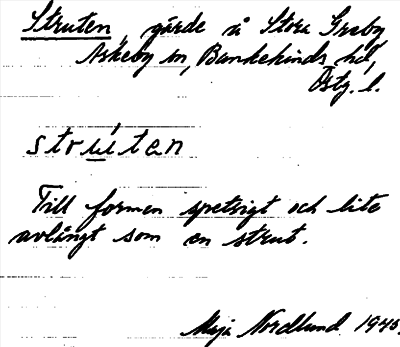 Struten, gärde å Stora Greby
Askeby sn, Bankekinds hd,
Östg. l.
strúten
Till formen spetsigt och lite
avlångt som en strut.
Maja Nordlund 1940.